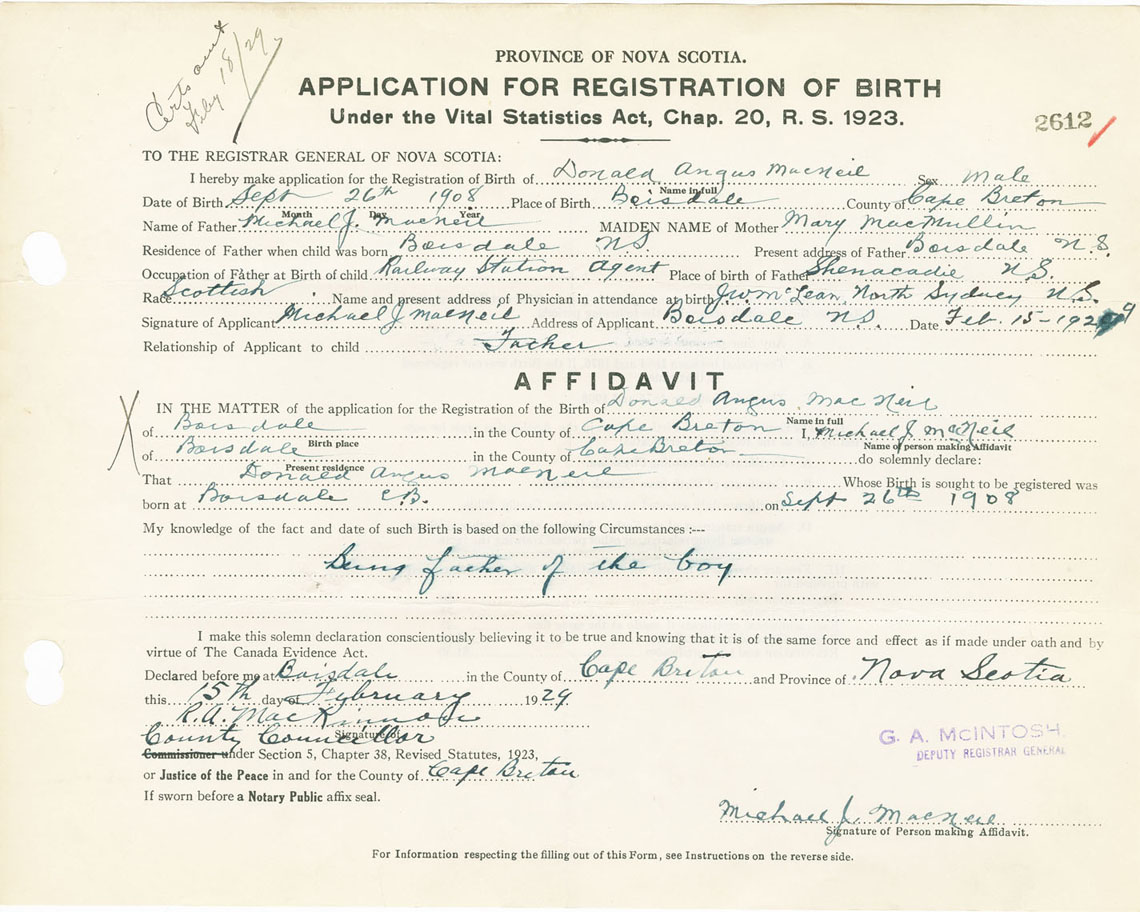 Certs out
Feby 18/29
PROVINCE OF NOVA SCOTIA.
APPLICATION FOR REGISTRATION OF BIRTH
Under the Vital Statistics Act, Chap. 20, R. S. 1923.
2612
TO THE REGISTRAR GENERAL OF NOVA SCOTIA:
I hereby make application for the Registration of Birth of Donald Angus MacNeil Sex Male
Name in full
Date of Birth Sept 26th 1908 Place of Birth Boisdale County of Cape Breton
Month Day Year
Name of Father Michael J. MacNeil MAIDEN NAME of Mother Mary MacMullin
Residence of Father when child was born Boisdale NS. Present address of Father Boisdale N.S.
Occupation of Father at Birth of child Railway Station Agent Place of birth of Father Shenacadie N.S.
Race Scottish. Name and present address of Physician in attendance at birth J.W. McLean North Sydney N.S.
Signature of Applicant Michael J MacNeil Address of Applicant Boisdale N.S. Date Feb. 15 - 1929
Relationship of Applicant to child Father
AFFIDAVIT
IN THE MATTER of the application for the Registration of the Birth of Donald Angus MacNeil
Name in full
of Boisdale in the County of Cape Breton I, Michael J. MacNeil
Birth place Name of person making Affidavit
of Boisdale in the County of Cape Breton do solemnly declare:
Present residence
That Donald Angus MacNeil Whose Birth is sought to be registered was
born at Boisdale C.B. on Sept 26th 1908
My knowledge of the fact and date of such Birth is based on the following Circumstances :---
Being father of the boy
I make this solemn declaration conscientiously believing it to be true and knowing that it is of the same force and effect as if made under oath and by
virtue of The Canada Evidence Act.
Declared before me at Boisdale in the County of Cape Breton and Province of Nova Scotia
this 15th day of February 1929
R.A. MacKinnon
Signature of
County Councillor
Commissioner under Section 5, Chapter 38, Revised Statutes, 1923,
or Justice of the Peace in and for the County of Cape Breton
If sworn before a Notary Public affix seal.
G. A. McINTOSH.
DEPUTY REGISTRAR GENERAL
Michael J. MacNeil
Signature of Person making Affidavit.
For Information respecting the filling out of this Form, see Instructions on the reverse side.